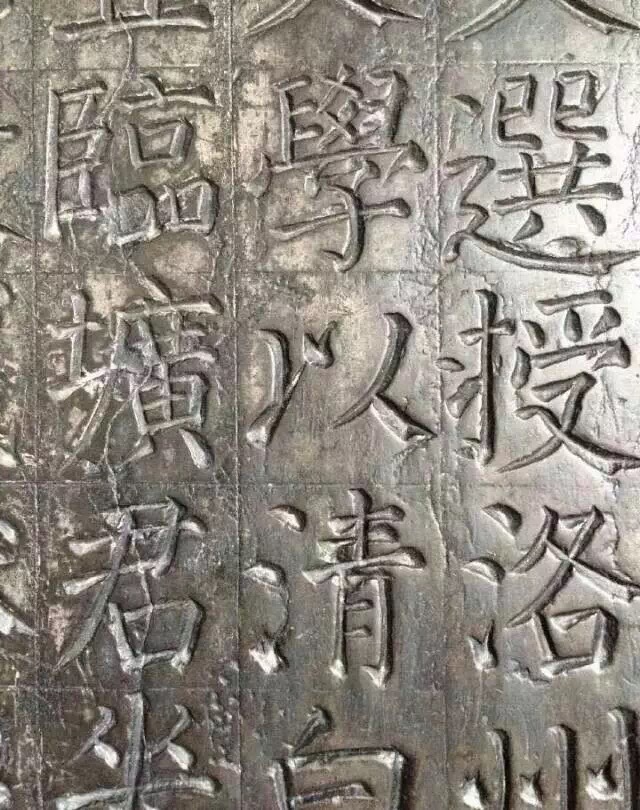 選授洛州
學以清白
臨壙君